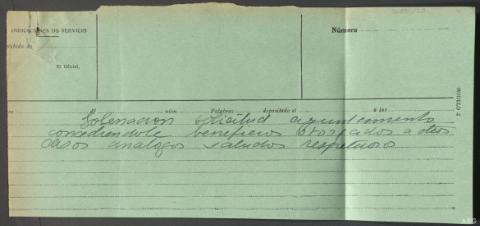 INDICACIONES DE SERVICIO
Número
El Oficial,
núm. Palabras depositado el a las
Gobernacion solicitud ayuntamiento
concediendole beneficios otorgados a otros
casos analogos saludos respetuosos